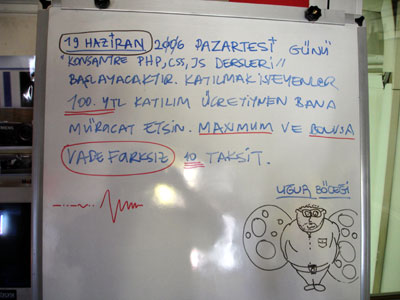 19 HAZİRAN 2006 PAZARTESİ GÜNÜ
"KONSANTRE PHP, CSS, JS DERSLERİ"
BAŞLAYACAKTIR. KATILMAK İSTEYENLER
100. YTL KATILIM ÜCRETİYNEN BANA
MÜRACAT ETSİN. MAXIMUM VE BONUSA
VADE FARKSIZ 10 TAKSİT.
UĞUR BÖCEĞİ